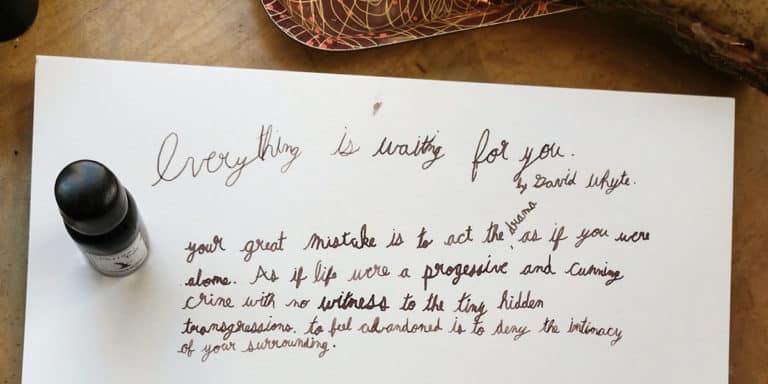 Everything is waiting for you.
by David Whyte.
your great mistake is to act the drama, as if you were
alone. As if life were a progessive and cunning
crine with no witness to the tiny hidden
transgressions. to feel abandoned is to deny the intimacy
of your surrounding.